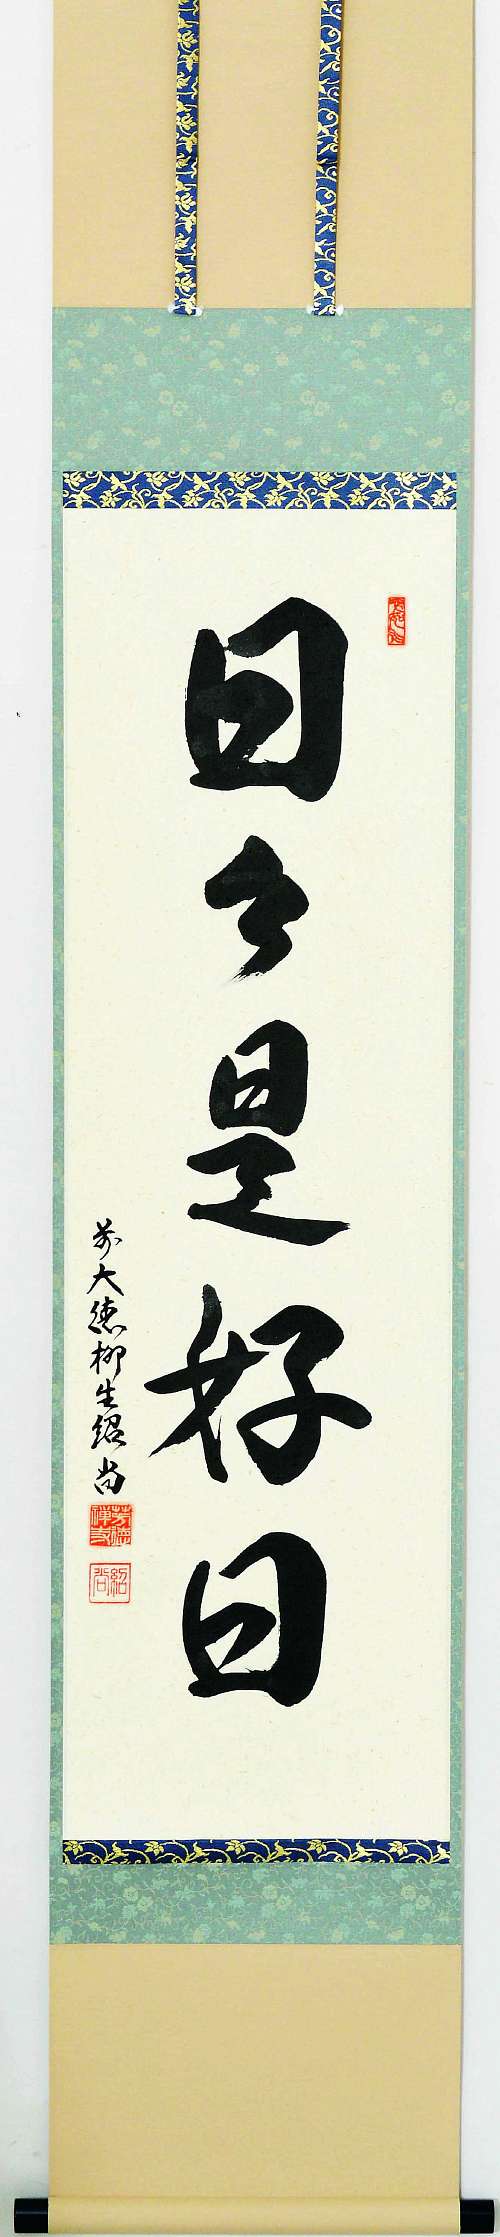 日々是好日
前大徳柳生紹尚
芳徳禅寺
紹尚